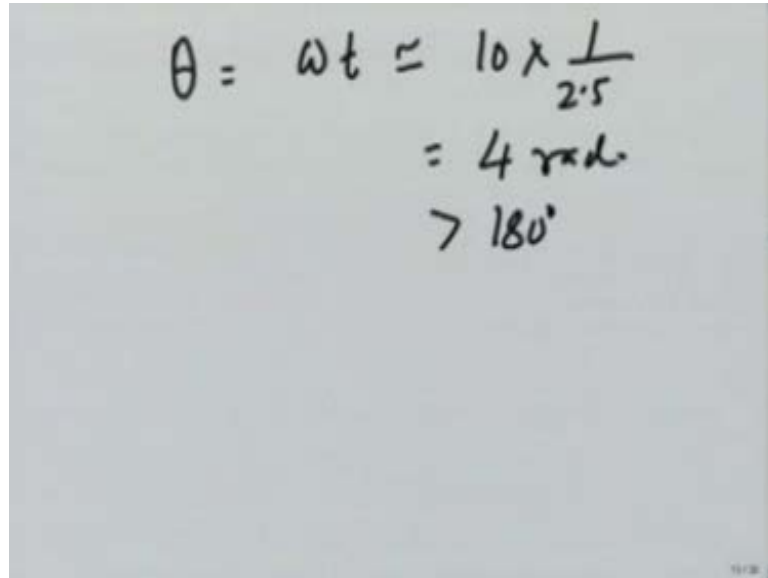 θ = ωt ≃ 10 × 1/2.5
= 4 rad.
> 180°